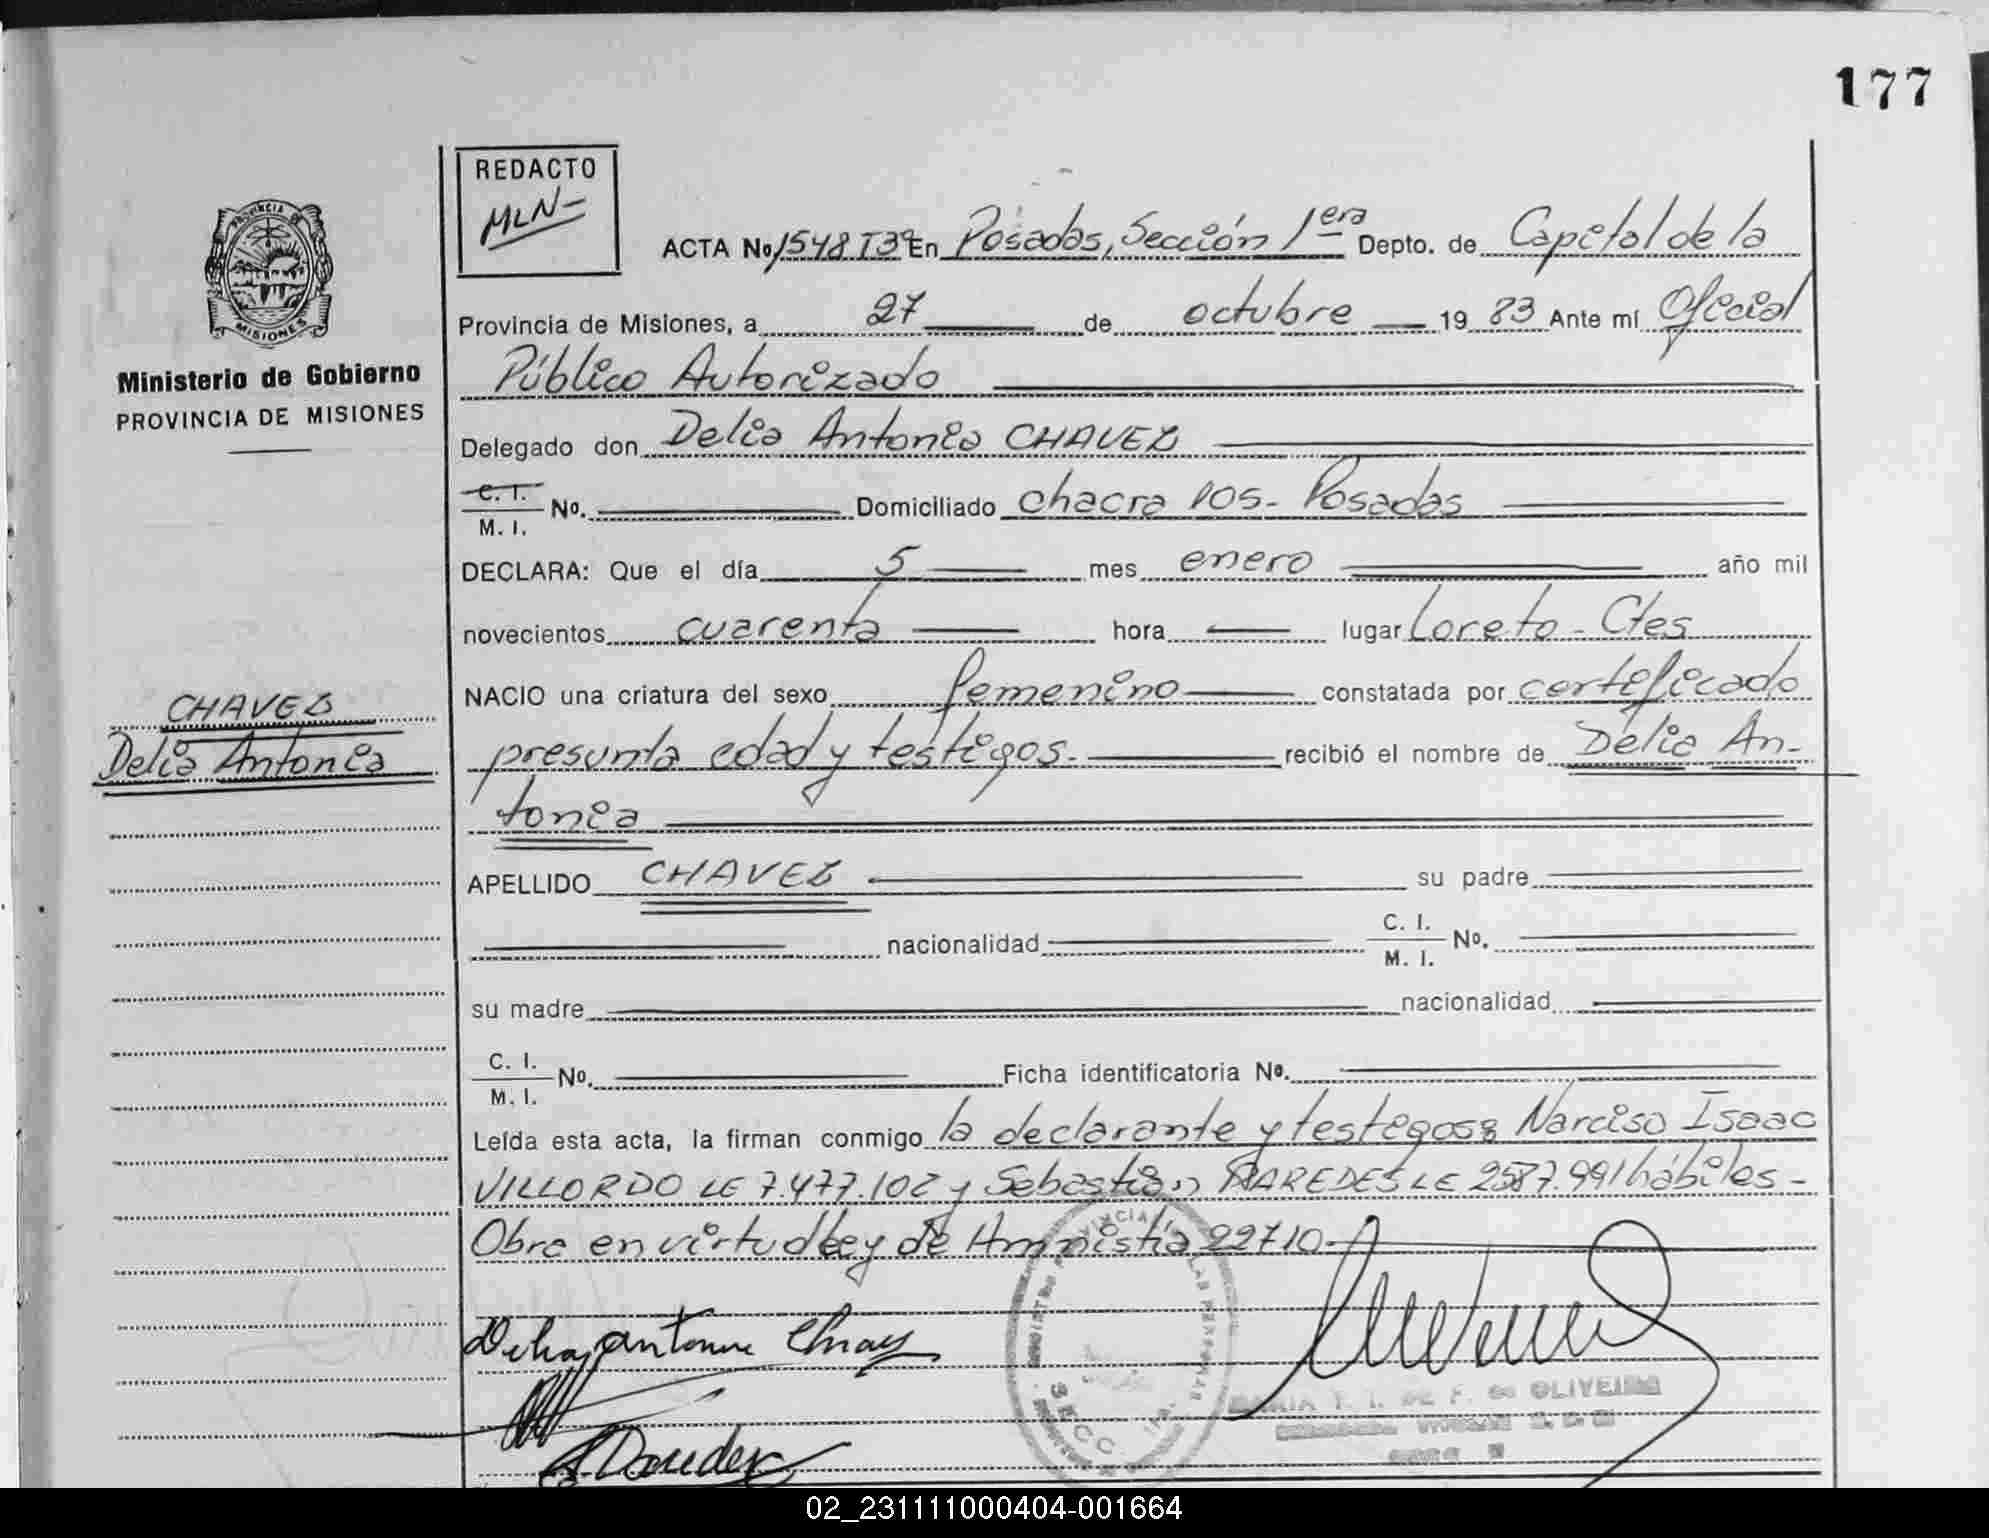 177
REDACTO
MLN-
PROVINCIA DE
MISIONES
Ministerio de Gobierno
PROVINCIA DE MISIONES
ACTA No 1548 T3º En Posadas, Sección 1era Depto. de Capital de la
Provincia de Misiones, a 27 de octubre 1983 Ante mí Oficial
Público Autorizado
Delegado don Delia Antonia CHAVEZ
C. I.
M. I. No. Domiciliado chacra 105- Posadas
DECLARA: Que el día 5 mes enero año mil
novecientos cuarenta hora lugar Loreto - Ctes
NACIO una criatura del sexo femenino constatada por certificado
presunta edad y testigos. recibió el nombre de Delia An-
tonia
CHAVEZ
Delia Antonia
APELLIDO CHAVEZ su padre
nacionalidad C. I.
M. I. No.
su madre nacionalidad
C. I.
M. I. No. Ficha identificatoria No.
Leída esta acta, la firman conmigo la declarante y testigos: Narciso Isaac
VILLORDO LE 7.477.102 y Sebastián PAREDES LE 2587.991 hábiles-
Obra en virtud Ley de Amnistía 22710-
Delia antonia Chavez
SECC. 1ra.
OLIVEIRA
02_231111000404-001664